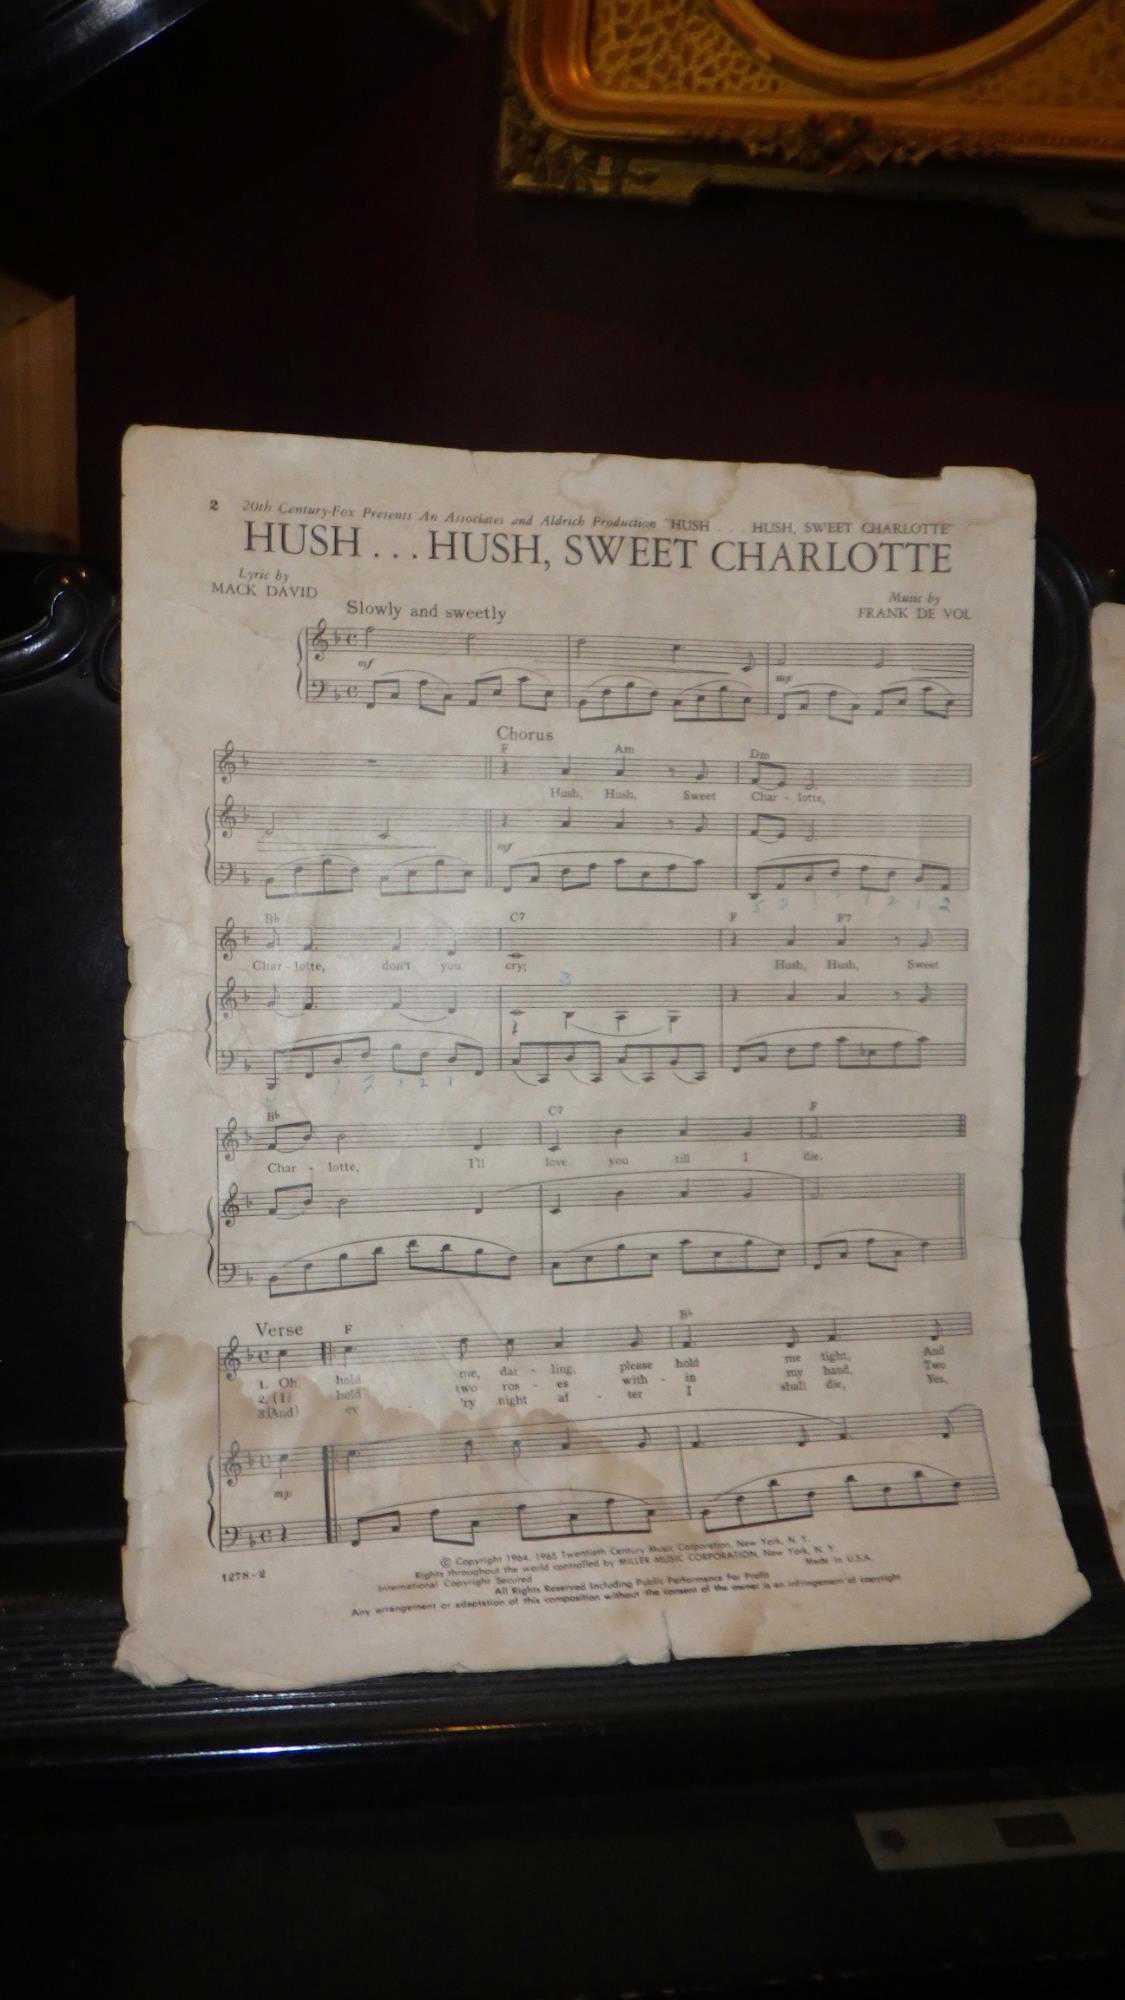 2 20th Century-Fox Presents An Associates and Aldrich Production "HUSH . . . HUSH, SWEET CHARLOTTE"
HUSH . . . HUSH, SWEET CHARLOTTE
Lyric by
MACK DAVID
Music by
FRANK DE VOL
Slowly and sweetly
mf
mp
Chorus
F Am Dm
Hush, Hush, Sweet Char - lotte,
mf
Bb C7 F F7
Char - lotte, don't you cry; Hush, Hush, Sweet
3
Bb C7 F
Char - lotte, I'll love you till I die.
Verse F Bb
1. Oh hold me, dar - ling, please hold me tight, And
2. (I) hold two ros - es with - in my hand, Two
3. (And) ev 'ry night af - ter I shall die, Yes,
mp
© Copyright 1964, 1965 Twentieth Century Music Corporation, New York, N. Y.
Rights throughout the world controlled by MILLER MUSIC CORPORATION, New York, N. Y.
1278-2 International Copyright Secured Made in U.S.A.
All Rights Reserved Including Public Performance For Profit
Any arrangement or adaptation of this composition without the consent of the owner is an infringement of copyright